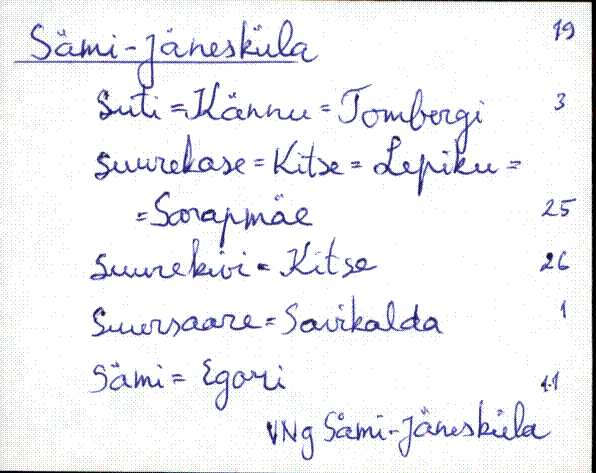 Sämi-Jänesküla 19
Suti = Kännu = Tombergi 3
Suurekase = Kitse = Lepiku =
= Sarapmäe 25
Suurekivi = Kitse 26
Suursaare = Savikalda 1
Sämi = Egori 11
VNg Sämi-Jänesküla